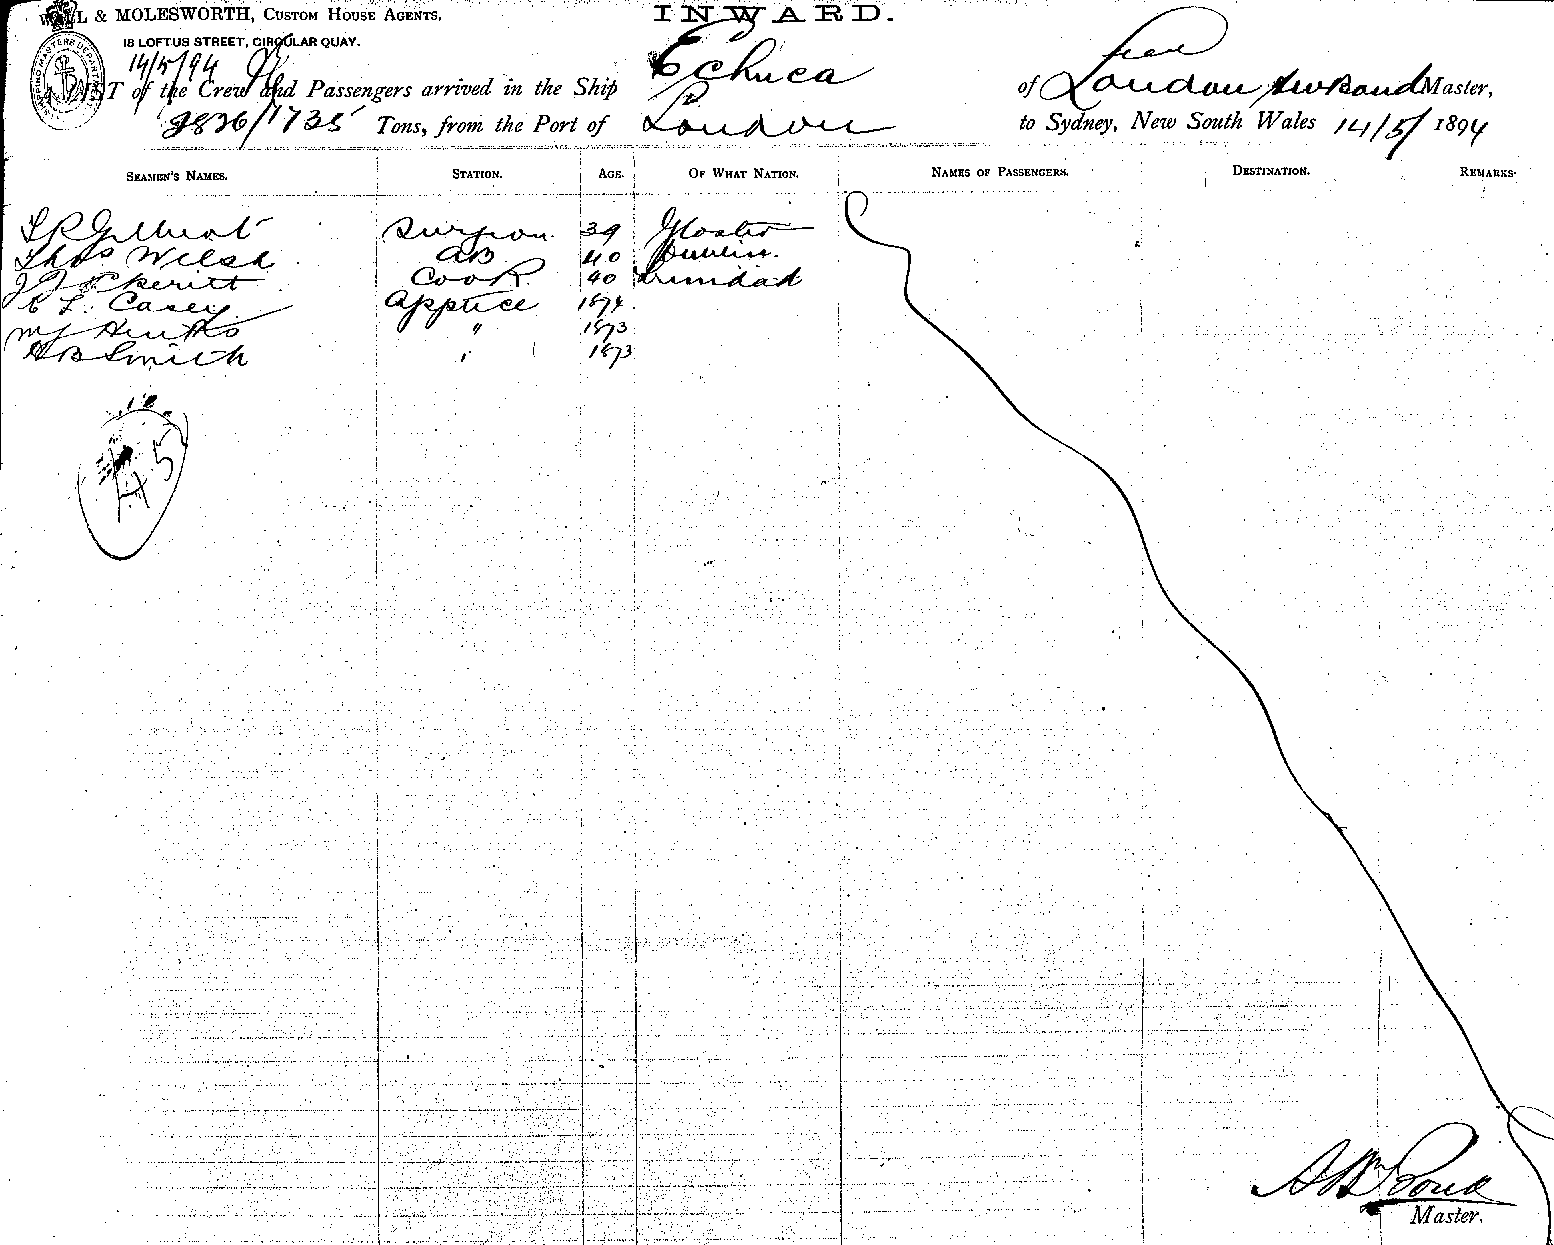 WALL & MOLESWORTH, CUSTOM HOUSE AGENTS,
18 LOFTUS STREET, CIRCULAR QUAY.
INWARD.
14/5/94
LIST of the Crew and Passengers arrived in the Ship Echuca of London Master,
1735 Tons, from the Port of London to Sydney, New South Wales 14/5/1894
SEAMEN'S NAMES. STATION. AGE. OF WHAT NATION. NAMES OF PASSENGERS. DESTINATION. REMARKS.
Surgeon 39 Gloster
Thos Welsh AB 40 Dublin.
Cook 40 Trinidad
Casey Apptice 1874
" 1873
Smith " 1873
45
Master.